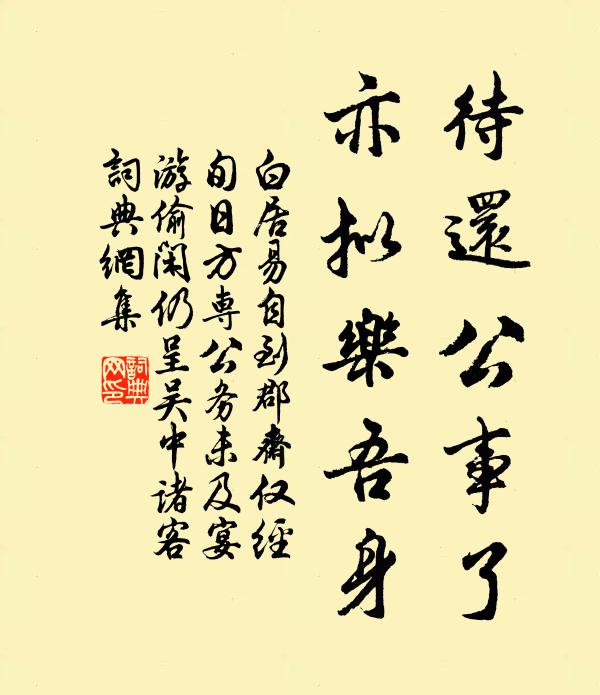 待還公事了
亦拟樂吾身
白居易自到郡齋仅經
旬日方専公务未及宴
游偷閑仍呈吴中诸客
詞典網集
詞典网印